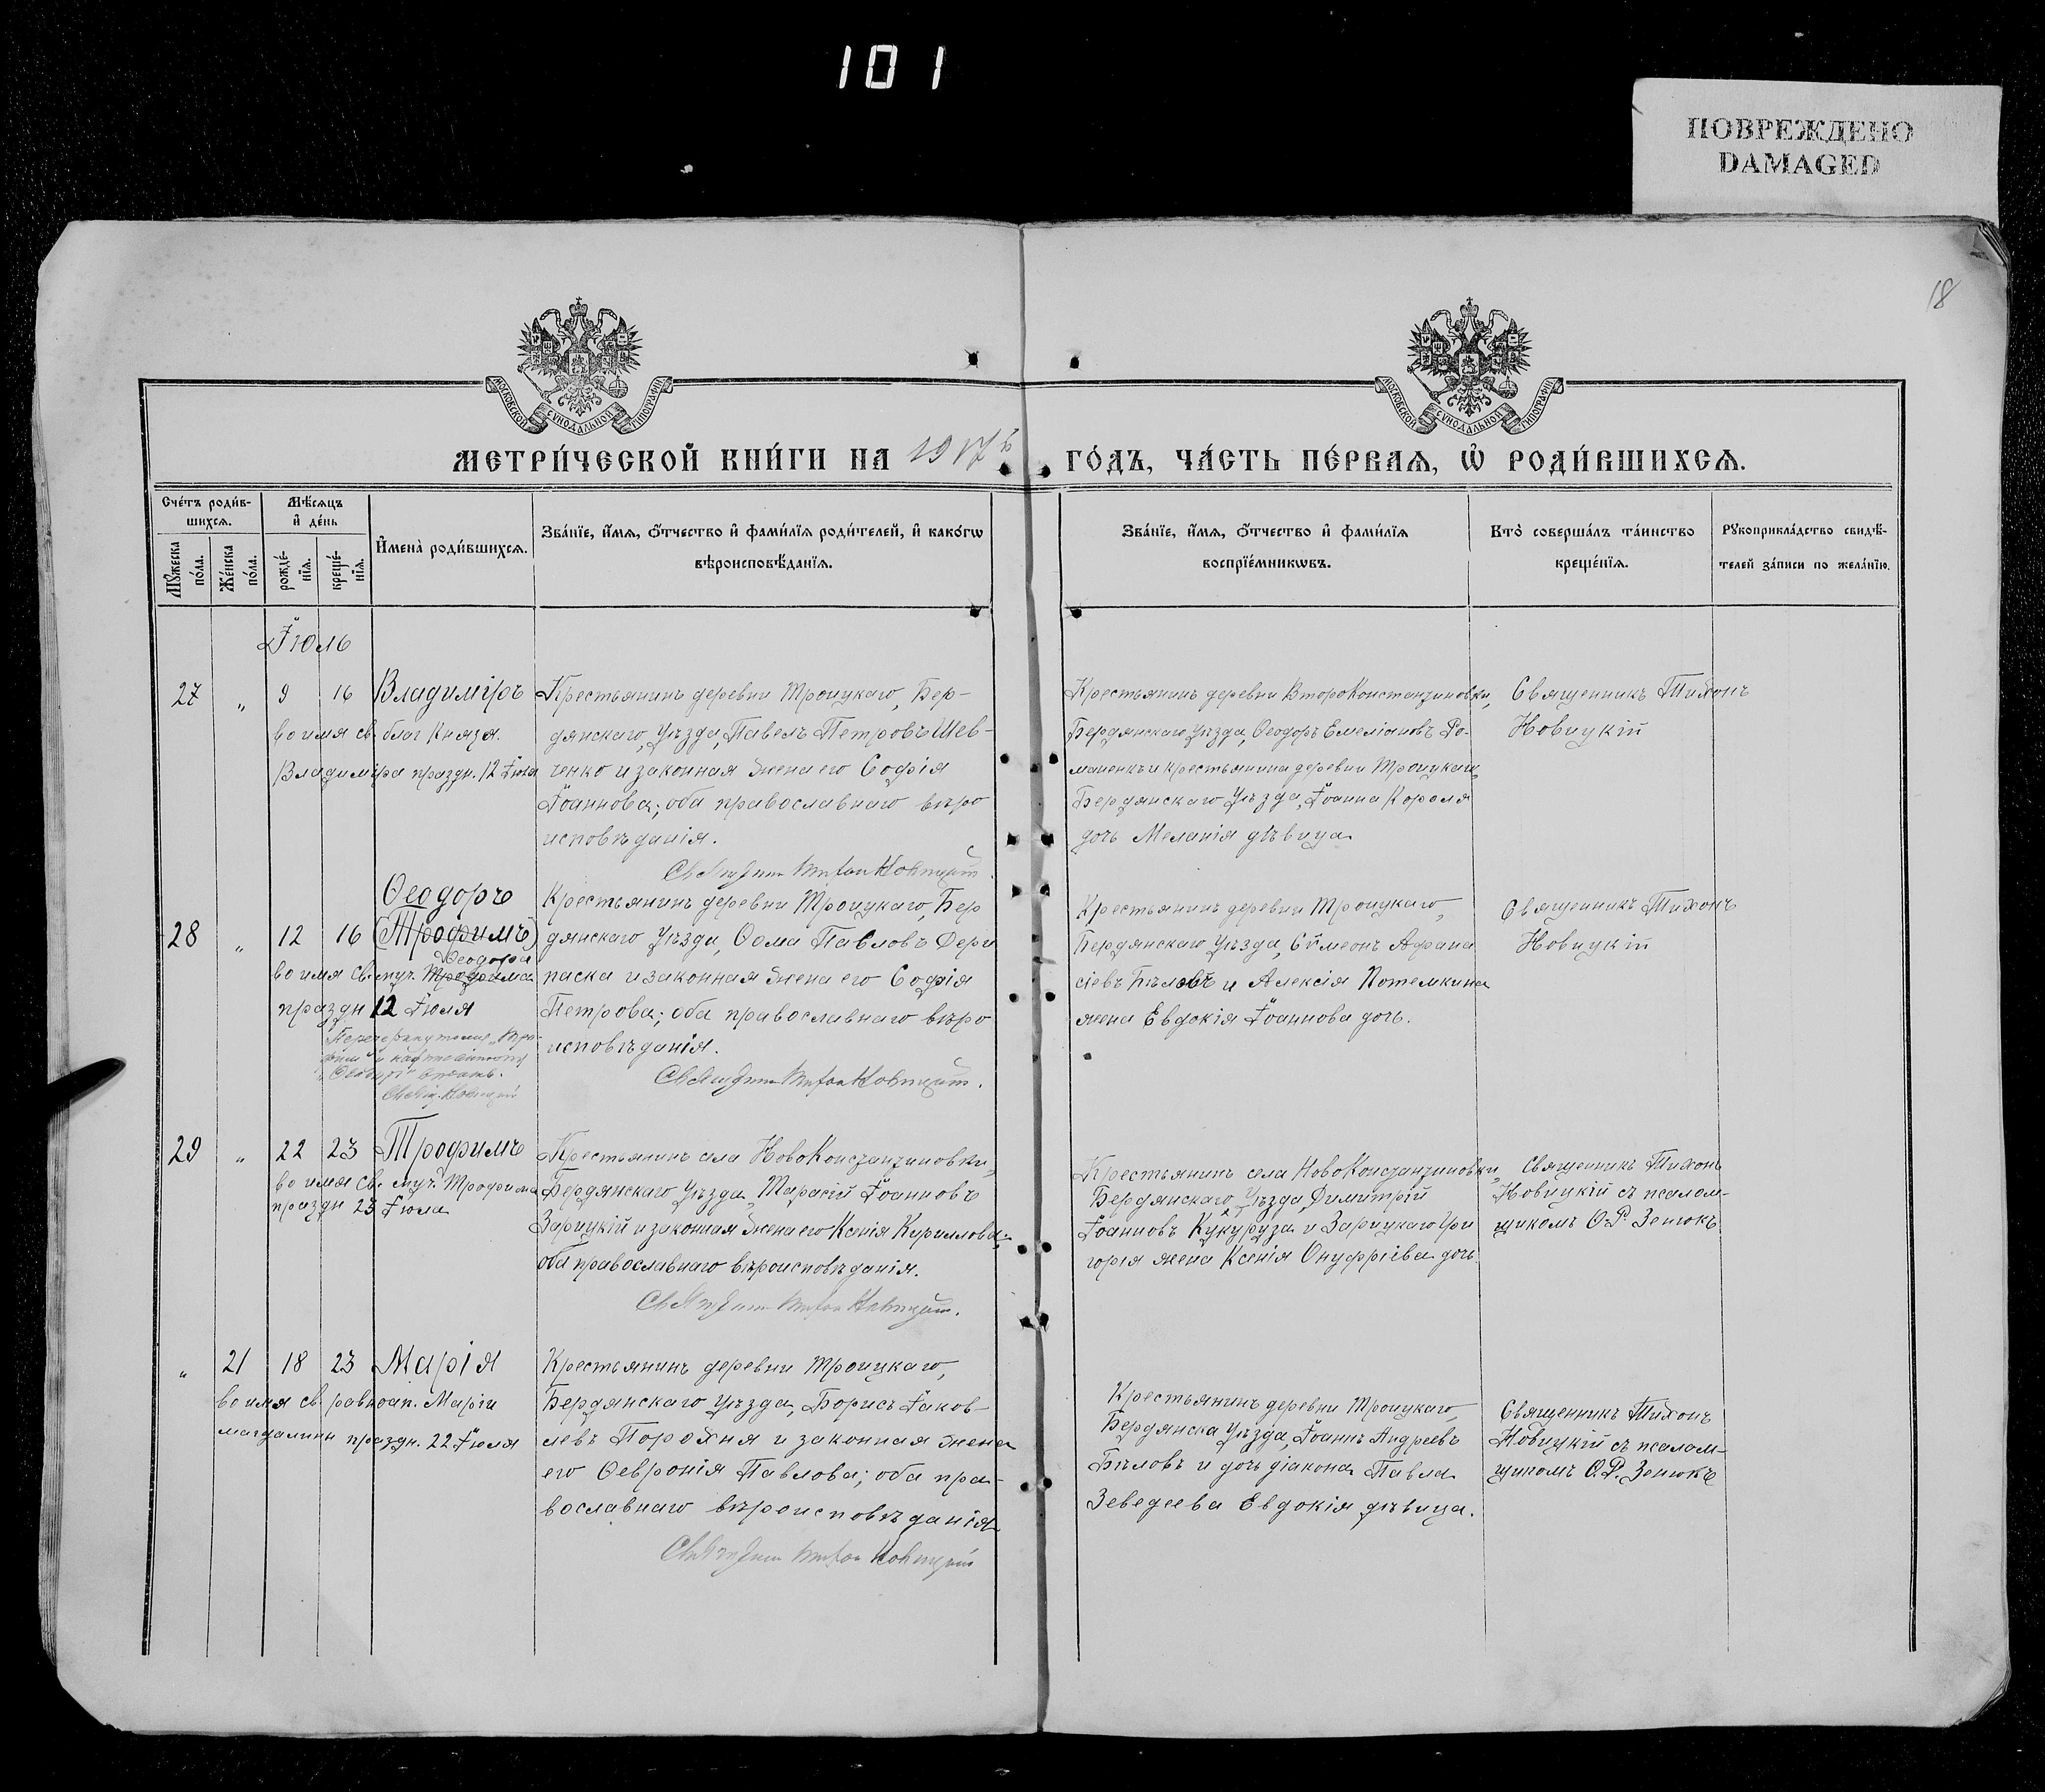 101
ПОВРЕЖДЕНО
DAMAGED
18
МОСКОВСКОЙ СѴНОДАЛЬНОЙ ТИПОГРАФІИ
МОСКОВСКОЙ СѴНОДАЛЬНОЙ ТИПОГРАФІИ
МЕТРИ́ЧЕСКОЙ КНИ́ГИ НА 1917ъ ГО́ДЪ, ЧА́СТЬ ПЕ́РВАЯ, Ѽ РОДИ́ВШИХСЯ.
Сче́тъ роди́в-
шихся.
Мꙋ́жеска
по́ла.
Же́нска
по́ла.
Мѣ́сяцъ
и҆ де́нь
рожде́-
нїя.
креще́-
нїя.
И҆мена̀ роди́вшихся.
Зва́нїе, и҆́мя, ѻ҆́тчество и҆ фами́лїя роди́телей, и҆ како́гѡ
вѣроисповѣ́данїя.
Зва́нїе, и҆́мя, ѻ҆́тчество и҆ фами́лїя
воспрїе́мникѡвъ.
Кто̀ соверша́лъ та́инство
креще́нїя.
Рꙋкоприкла́дство свидѣ́-
телей за́писи по жела́нїю.
Іюль
27 „ 9 16 Владиміръ
во имя св. благ Князя
Владиміра праздн. 12 Іюля
Крестьянинъ деревни Троицкаго, Бер-
дянскаго, Уѣзда, Павелъ Петровъ Шев-
ченко и законная жена его Софія
Іоаннова; оба православнаго вѣро
исповѣданія.
Священник Тихон Новицкий
Крестьянинъ деревни ВтороКонстантиновки,
Бердянскаго Уѣзда, Ѳеодоръ Емеліановъ Ро-
маненкъ и крестьянина деревни Троицкаго,
Бердянскаго Уѣзда, Іоанна Короля
дочь Меланія дѣвица
Священникъ Тихонъ
Новицкій
28 „ 12 16 Ѳеодоръ
(Трофимъ)
Ѳеодора
во имя св. муч. Трофима
праздн 12 Іюля
Перечеркнутому „Тро-
фим“ и надписанному
„Ѳеодоръ“ верить.
Свящ. Новицкий
Крестьянинъ деревни Троицкаго, Бер
дянскаго Уѣзда, Ѳома Павловъ Дери
паска и законная жена его Софія
Петрова; оба православнаго вѣро
исповѣданія.
Священник Тихон Новицкий.
Крестьянинъ деревни Троицкаго,
Бердянскаго Уѣзда, Сѷмеонъ Афана
сіевъ Бѣловъ и Алексія Потемкина
жена Евдокія Іоаннова дочь.
Священникъ Тихонъ
Новицкій
29 „ 22 23 Трофимъ
во имя св. муч. Трофима
праздн 23 Іюля
Крестьянинъ села НовоКонстантиновки,
Бердянскаго Уѣзда, Тарасій Іоанновъ
Зарицкій и законная жена его Ксенія Кириллова;
оба православнаго вѣроисповѣданія.
Священник Тихон Новицкий.
Крестьянинъ села НовоКонстантиновки,
Бердянскаго, Уѣзда, Димитрій
Іоанновъ Кукуруза и Зарицкаго Гри
горія жена Ксенія Онуфріева дочь.
Священникъ Тихонъ
Новицкій съ псалом-
щикомъ Ѳ. Р. Зенюкъ
„ 21 18 23 Марія
во имя св. равноап. Маріи
магдалины праздн. 22 Іюля
Крестьянинъ деревни Троицкаго,
Бердянскаго Уѣзда, Борисъ Іаков-
левъ Порохня и законная жена
его Ѳевронія Павлова; оба пра-
вославнаго вѣроисповѣданія
Священник Тихон Новицкий
Крестьянинъ деревни Троицкаго,
Бердянска Уѣзда, Іоаннъ Андреевъ
Бѣловъ и дочь діакона Павла
Зеведеева Евдокія дѣвица.
Священникъ Тихонъ
Новицкій съ псалом-
щикомъ Ѳ. Р. Зенюкъ